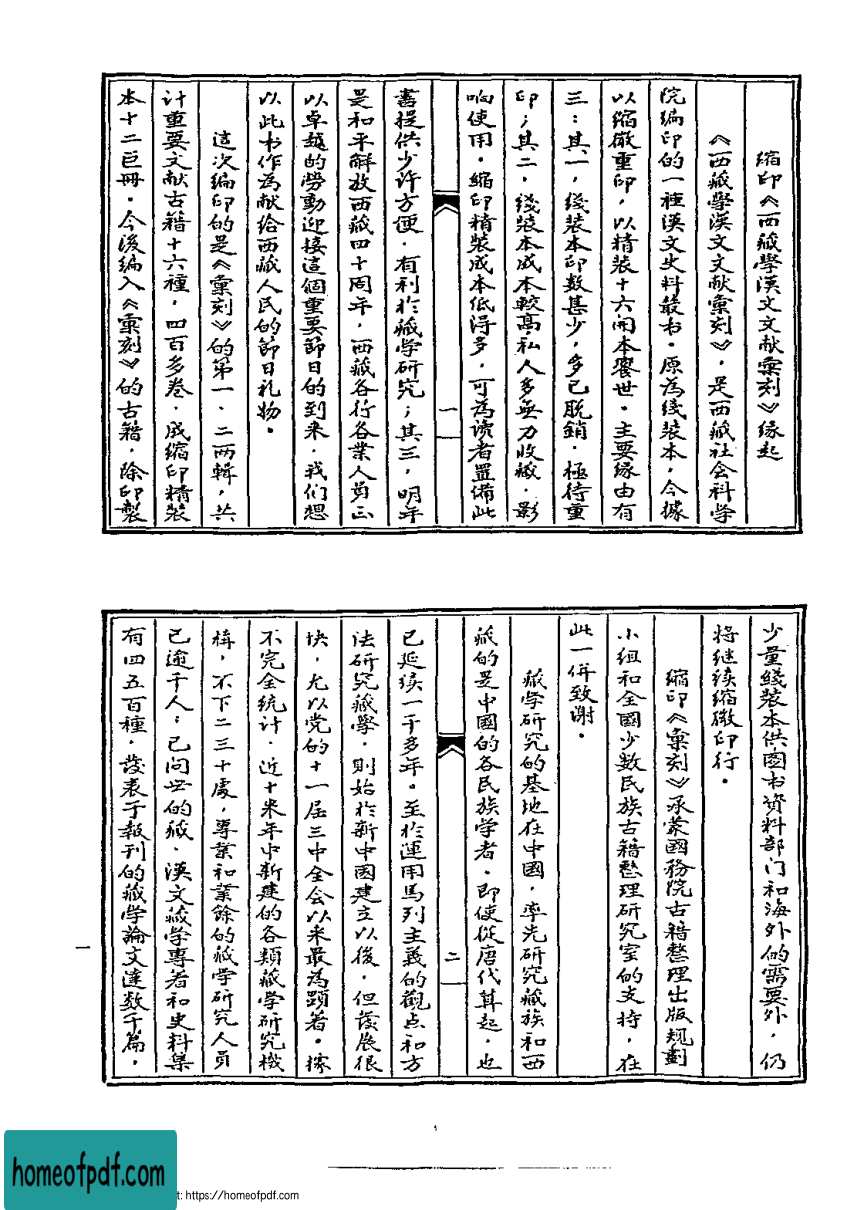 縮印《西藏學漢文文献彙刻》缘起
《西藏學漢文文献彙刻》，是西藏社会科学
院編印的一種漢文史料叢书。原為綫装本，今據
以缩微重印，以精装十六開本饗世。主要緣由有
三：其一，綫装本印数甚少，多已脱銷．極待重
印；其二，綫装本成本較高，私人多無力收藏．影
响使用。缩印精装成本低得多，可為读者置備此
一
書提供少许方便．有利於藏学研究；其三，明年
是和平解放西藏四十周年，西藏各行各業人員正
以卓越的勞動迎接這個重要節日的到來．我们想
以此书作為献给西藏人民的節日礼物。
這次编印的是《彙刻》的第一．二两輯，共
计重要文献古籍十六種，四百多卷．成缩印精装
本十二巨冊．今後编入《彙刻》的古籍，除印製
少量綫装本供图书资料部门和海外的需要外，仍
将继续缩微印行。
缩印《彙刻》承蒙國務院古籍整理出版规劃
小組和全國少数民族古籍整理研究室的支持，在
此一併致谢。
藏学研究的基地在中國，率先研究藏族和西
藏的是中國的各民族学者．即使從唐代算起，也
二
已延续一千多年。至於運用馬列主義的觀点和方
法研究藏學．則始於新中國建立以後，但發展很
快．尤以党的十一届三中全会以来最為顕著。據
不完全统计．近十来年中新建的各類藏学研究機
構，不下二三十處，專業和業餘的藏学研究人員
已逾千人；已问世的藏．漢文藏学專著和史料集
有四五百種．發表于報刊的藏学論文達数千篇，
一
homeofpdf.com
t: https://homeofpdf.com